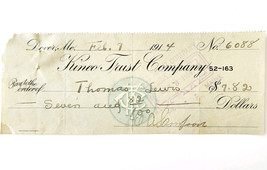 Dover, Me. Feb. 7 1914 No. 6088
Kineo Trust Company 52-163
Pay to the order of Thomas Lewis $7.82
Seven and 82/100 Dollars